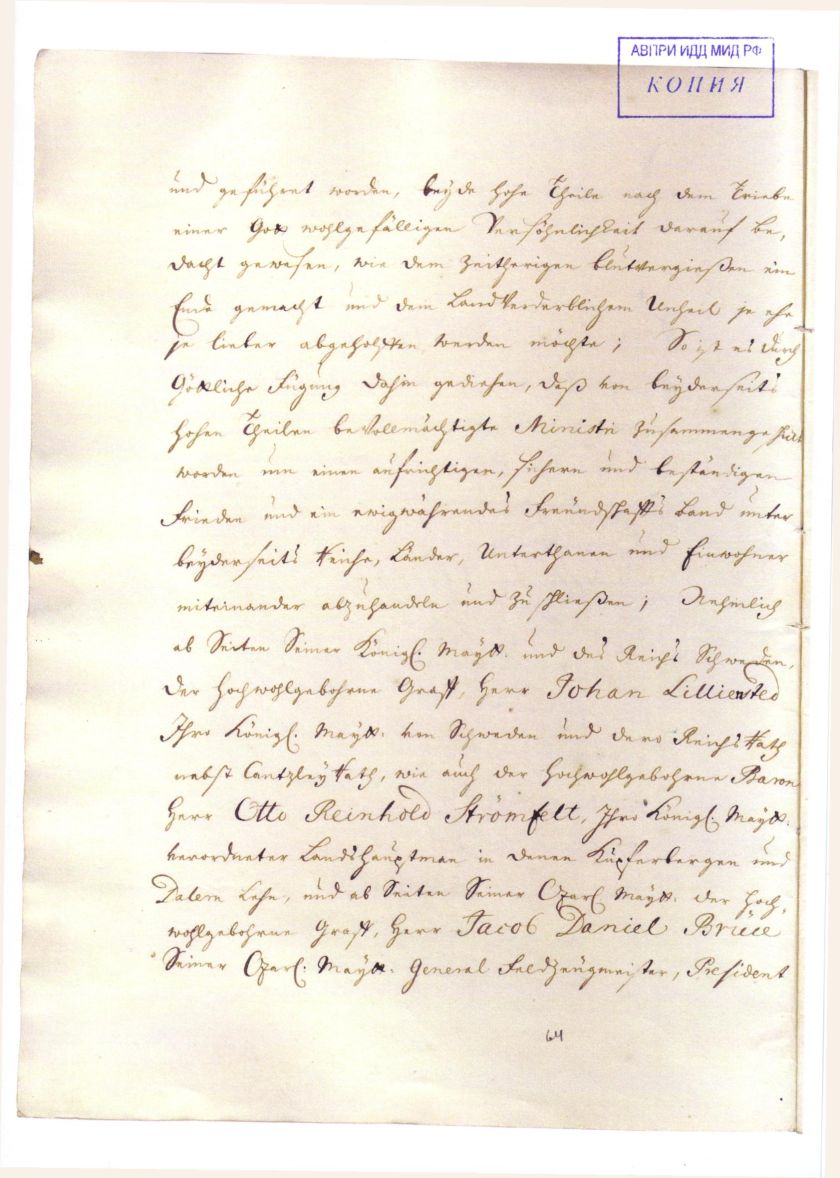 АВПРИ ИДД МИД РФ
КОПИЯ
und geführet worden, beyde hohe Theile nach dem Triebe
einer Gott wohlgefälligen Versöhnlichkeit darauf be,
dacht gewesen, wie dem zeitherigen blutvergießen ein
Ende gemacht und dem LandVerderblichem Unheil je ehe
je lieber abgeholffen werden möchte; So ist es durch
Göttliche Fügung dahin gediehen, daß von beyderseits
hohen Theilen beVollmächtigte Ministri zusammengeschickt
worden um einen aufrichtigen, sichern und beständigen
Frieden und ein ewigwährendes Freündschaffts Band unter
beyderseits Reiche, Länder, Unterthanen und Einwohner
miteinander abzuhandeln und zu schließen; Nehmlich
ab Seiten Seiner Königl. Maytt. und des Reichs Schweden,
der Hochwohlgebohrne Graff, Herr Johan Lilliensted
Ihro Königl. Maytt: von Schweden und dero Reichs Rath
nebst Cantzley Rath, wie auch der Hochwohlgebohrne Baron
Herr Otto Reinhold Strömfelt, Ihro Königl. Maytt:
verordneter Landshauptman in denen Kupferbergen und
Dalern Lehn, und ab Seiten Seiner Czarl. Maytt: der Hoch,
wohlgebohrne Graff, Herr Jacob Daniel Brüce
Seiner Czarl: Maytt: General Feldzeugmeister, President
64